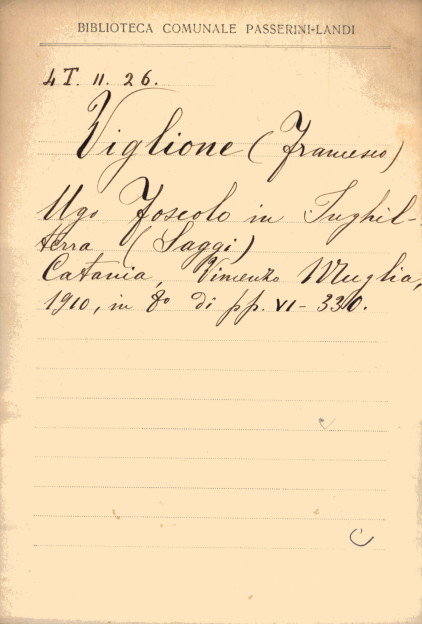 BIBLIOTECA COMUNALE PASSERINI-LANDI
4T. II. 26.
Viglione (Francesco)
Ugo Foscolo in Inghil-
terra (Saggi)
Catania, Vincenzo Muglia,
1910, in 8º di pp. VI-330.
C